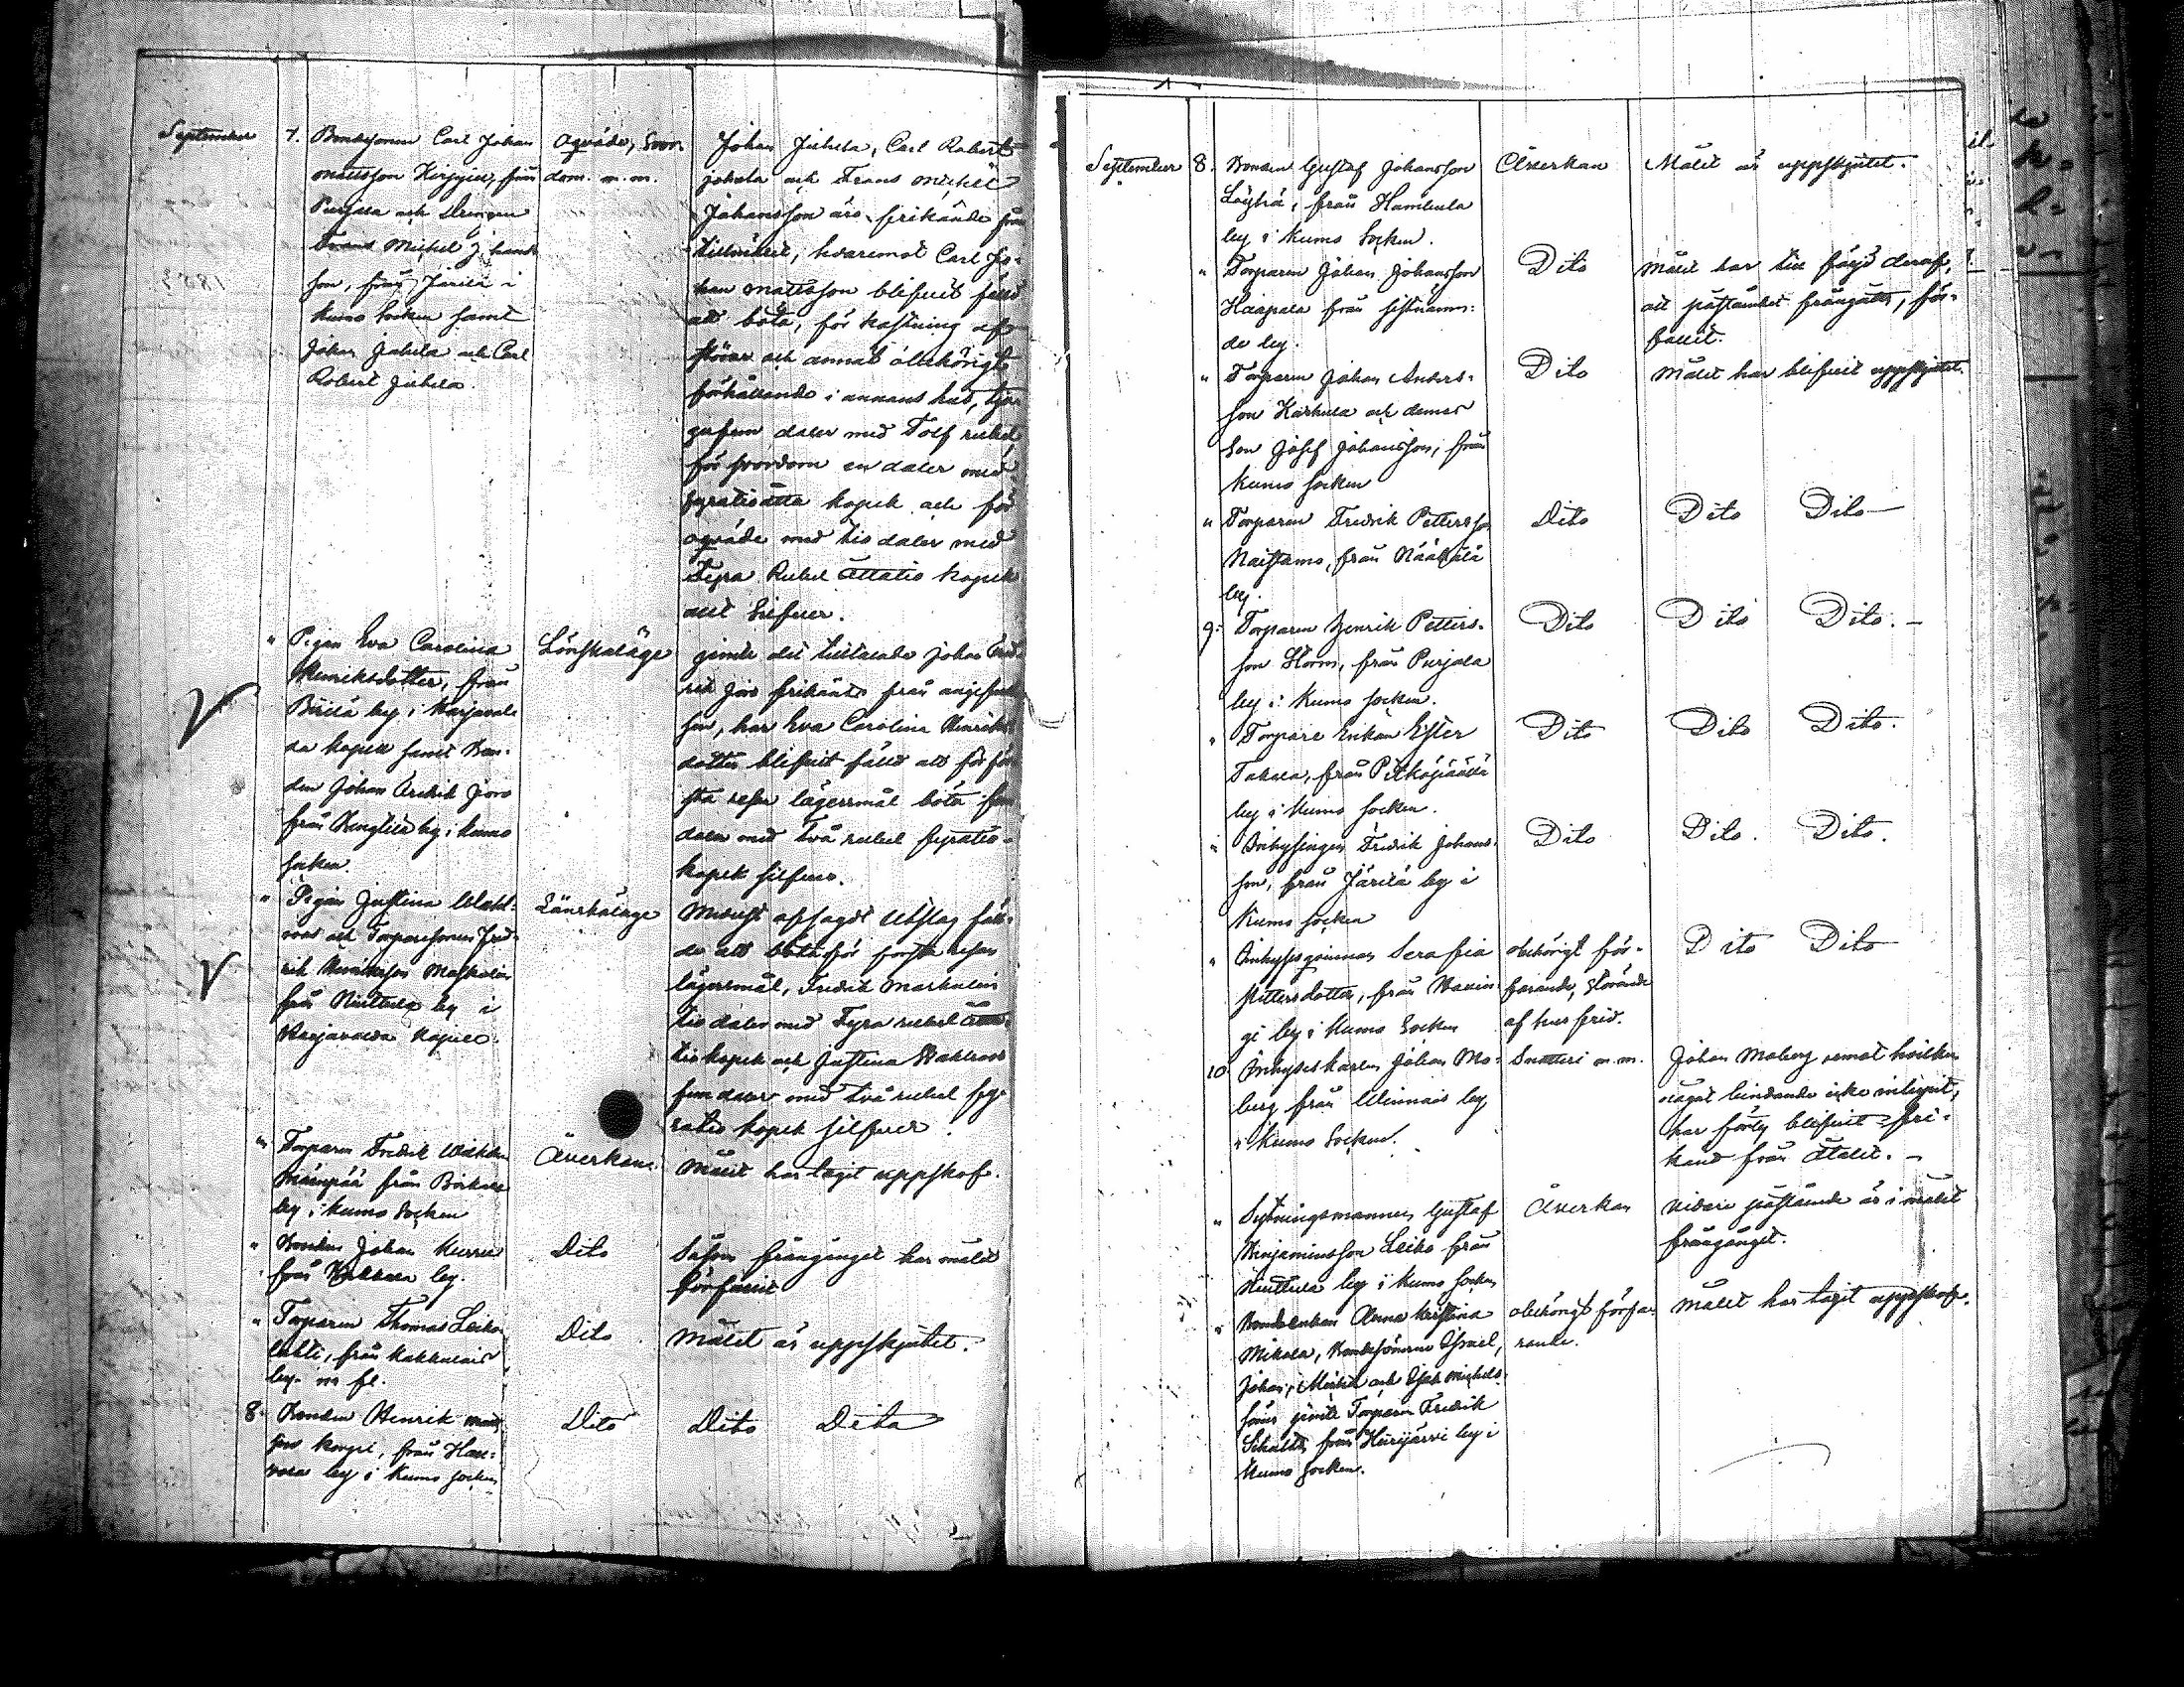 September 7. Bondesonen Carl Johan
Mattsson från
Purjala och Drengen
Frans Michel Johans
son, från Järilä i
Kumo Socken samt
Johan Juhela och Carl
Robert Juhela.
Oqväde, Svor-
dom. m.m.
Johan Juhela, Carl Robert
Juhela och Frans Michel
Johansson äro frikände från
tillmälet, hvaremot Carl Jo-
han Mattsson blifvit fälld
att böta, för kastning af
stövar och annat obehörigt
förhållande i annans hus, tju-
gufem daler med Tolf rubel,
för svordom en daler med
fyratioåtta kopek och för
oqväde med tio daler med
Fyra Rubel Åttatio kopek
allt Silfver.
" Pigan Eva Carolina
Henriksdotter, från
by i Harjaval-
da kapell samt Bon-
den Johan Fredrik
från by i Kumo
socken.
Lönskaläge
jemte det tilltalade Johan Fred-
rik frikänts från angifvel-
sen, har Eva Carolina Henriks
dotter blifvit fälld att för för-
sta resan lägersmål böta fem
daler med två rubel fyratio
kopek silfver.
" Pigan Justina Wahl-
roos och Torparesonen Fred-
rik Henriksson
från by i
Harjavalda Kapell.
Lönskaläge
Medelst afsagdt Utslag fäll-
da att böta för första resan
lägersmål, Fredrik
tio daler med Fyra rubel åtta-
tio kopek och Justina Wahlroos
fem daler med två rubel fy-
ratio kopek silfver.
" Torparen Fredrik
från
by i Kumo Socken
Åverkan.
Målet har tagit uppskof.
" Bonden Johan
från by.
Dito
Såsom frångånget har målet
förfallit
" Torparen Thomas Leiko-
lahti, från Kakkulais
by. m fl.
Dito
Målet är uppskjutet.
8. Bonden Henrik Matts
son från
by i Kumo socken
Dito
Dito Dito
September 8. Bonden Gustaf Johansson
Löyhä, från
by i Kumo Socken.
Åverkan
Målet är uppskjutet.
" Torparen Johan Johansson
Haapala från sistnämn-
de by.
Dito
Målet har till följd deraf,
att påståendet frångåtts, för-
fallit.
" Torparen Johan Anders-
son Karhula och dennes
Son Josef Johansson, från
Kumo socken
Dito
Målet har blifvit uppskjutet.
" Torparen Fredrik Pettersson
från
by.
Dito
Dito Dito
9. Torparen Henrik Petters-
son Storm, från Purjala
by i Kumo socken.
Dito
Dito Dito.
" Torpare Enkan Ester
Takala, från
by i Kumo socken.
Dito
Dito Dito.
" Inhysingen Fredrik Johans-
son, från Järilä by i
Kumo socken
Dito
Dito. Dito.
" Inhysesqvinnan Serafia
Pettersdotter, från
by i Kumo Socken
obehörigt för-
farande, störande
af husfrid.
Dito Dito
10 Inhyseskarlen Johan Mo-
berg från by
i Kumo Socken.
Snatteri m.m.
Johan Moberg, emot hvilken
något bindande icke inlupit,
har förty blifvit fri-
känd från åtalet.
" Sytningsmannen Gustaf
Benjaminsson Leiko från
by i Kumo socken
Åverkan
Vidare påstående är i målet
frångånget.
" Bondeenkan Anna Kerstina
Mikola, Bondesönerne Israel,
Johan, Michel och Isak Michels-
söner jemte Torparen Fredrik
från by i
Kumo Socken.
obehörigt förfa-
rande.
Målet har tagit uppskof.